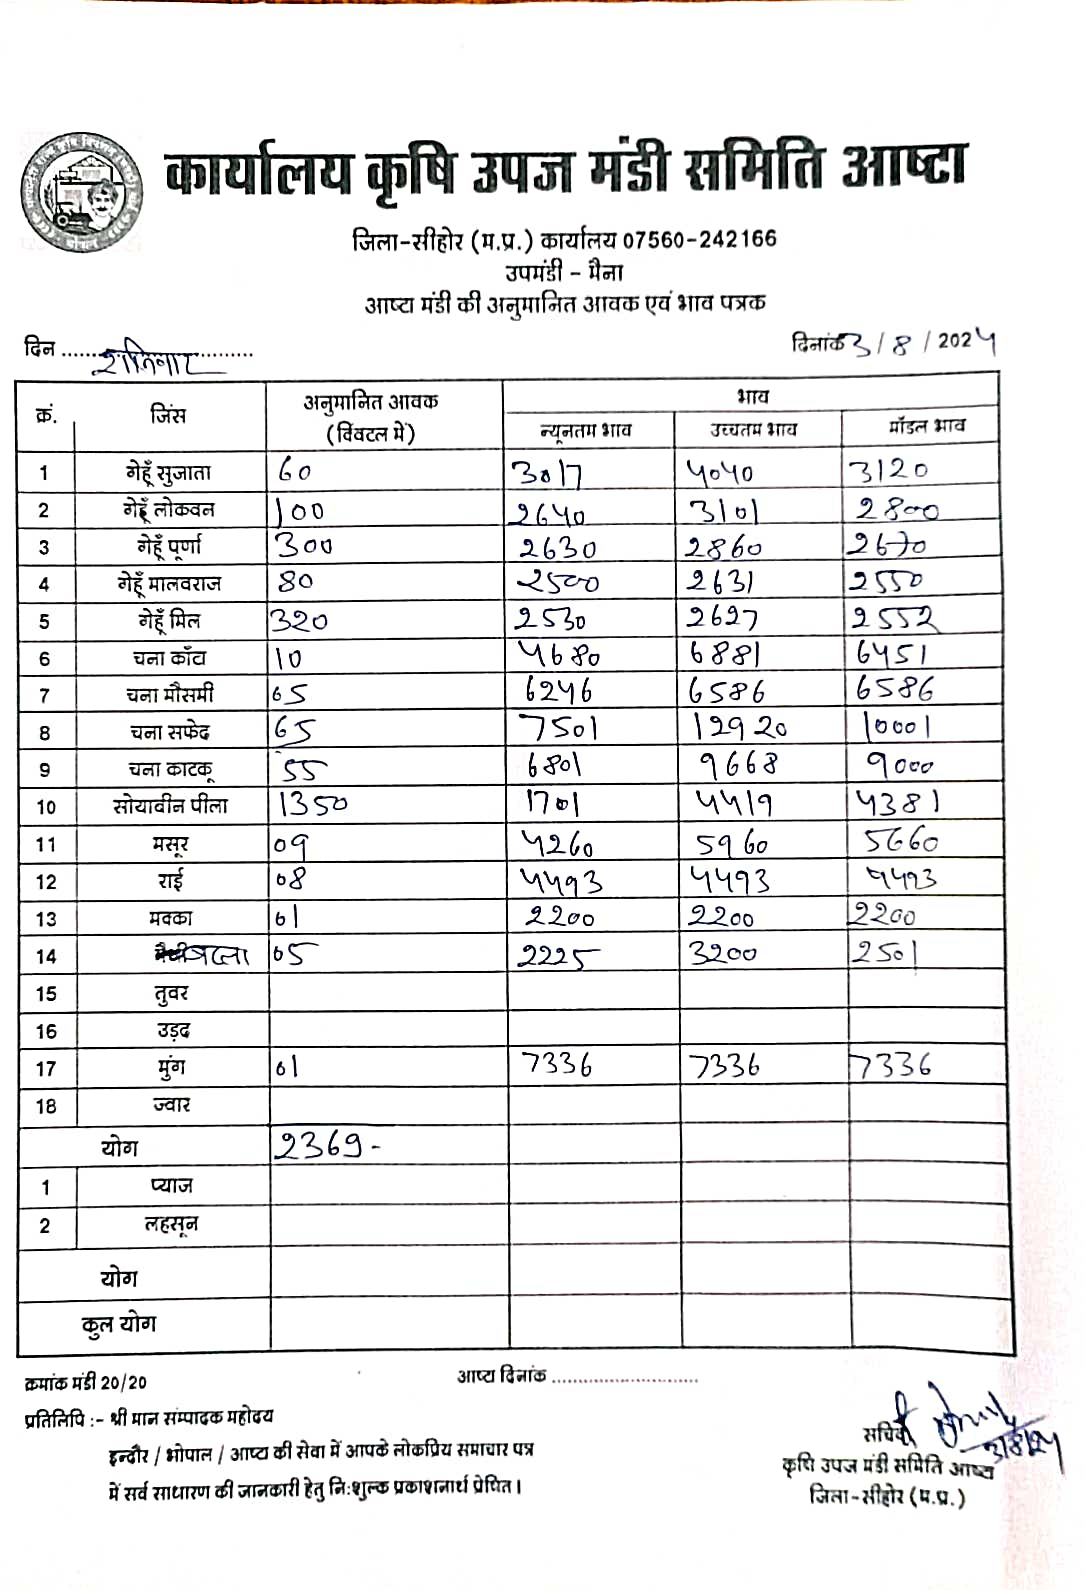 कार्यालय कृषि उपज मंडी समिति आष्टा
जिला-सीहोर (म.प्र.) कार्यालय 07560-242166
उपमंडी - मैना
आष्टा मंडी की अनुमानित आवक एवं भाव पत्रक
दिन शनिवार दिनांक 3/8/2024
क्रं. जिंस अनुमानित आवक (क्विंटल में) भाव
न्यूनतम भाव उच्चतम भाव मॉडल भाव
1 गेहूँ सुजाता 60 3017 4040 3120
2 गेहूँ लोकवन 100 2640 3101 2800
3 गेहूँ पूर्णा 300 2630 2860 2670
4 गेहूँ मालवराज 80 2500 2631 2550
5 गेहूँ मिल 320 2530 2627 2552
6 चना काँटा 10 4680 6881 6451
7 चना मौसमी 05 6246 6586 6586
8 चना सफेद 65 7501 12920 10001
9 चना काटकू 55 6801 9668 9000
10 सोयाबीन पीला 1350 1701 4419 4381
11 मसूर 09 4260 5960 5660
12 राई 08 4493 4493 4493
13 मक्का 01 2200 2200 2200
14 बटला 05 2225 3200 2501
15 तुवर
16 उड़द
17 मुंग 01 7336 7336 7336
18 ज्वार
योग 2369-
1 प्याज
2 लहसून
योग
कुल योग
क्रमांक मंडी 20/20 आष्टा दिनांक
प्रतिलिपि :- श्री मान सम्पादक महोदय
इन्दौर / भोपाल / आष्टा की सेवा में आपके लोकप्रिय समाचार पत्र
में सर्व साधारण की जानकारी हेतु नि:शुल्क प्रकाशनार्थ प्रेषित।
सचिव
3/8/24
कृषि उपज मंडी समिति आष्टा
जिला-सीहोर (म.प्र.)